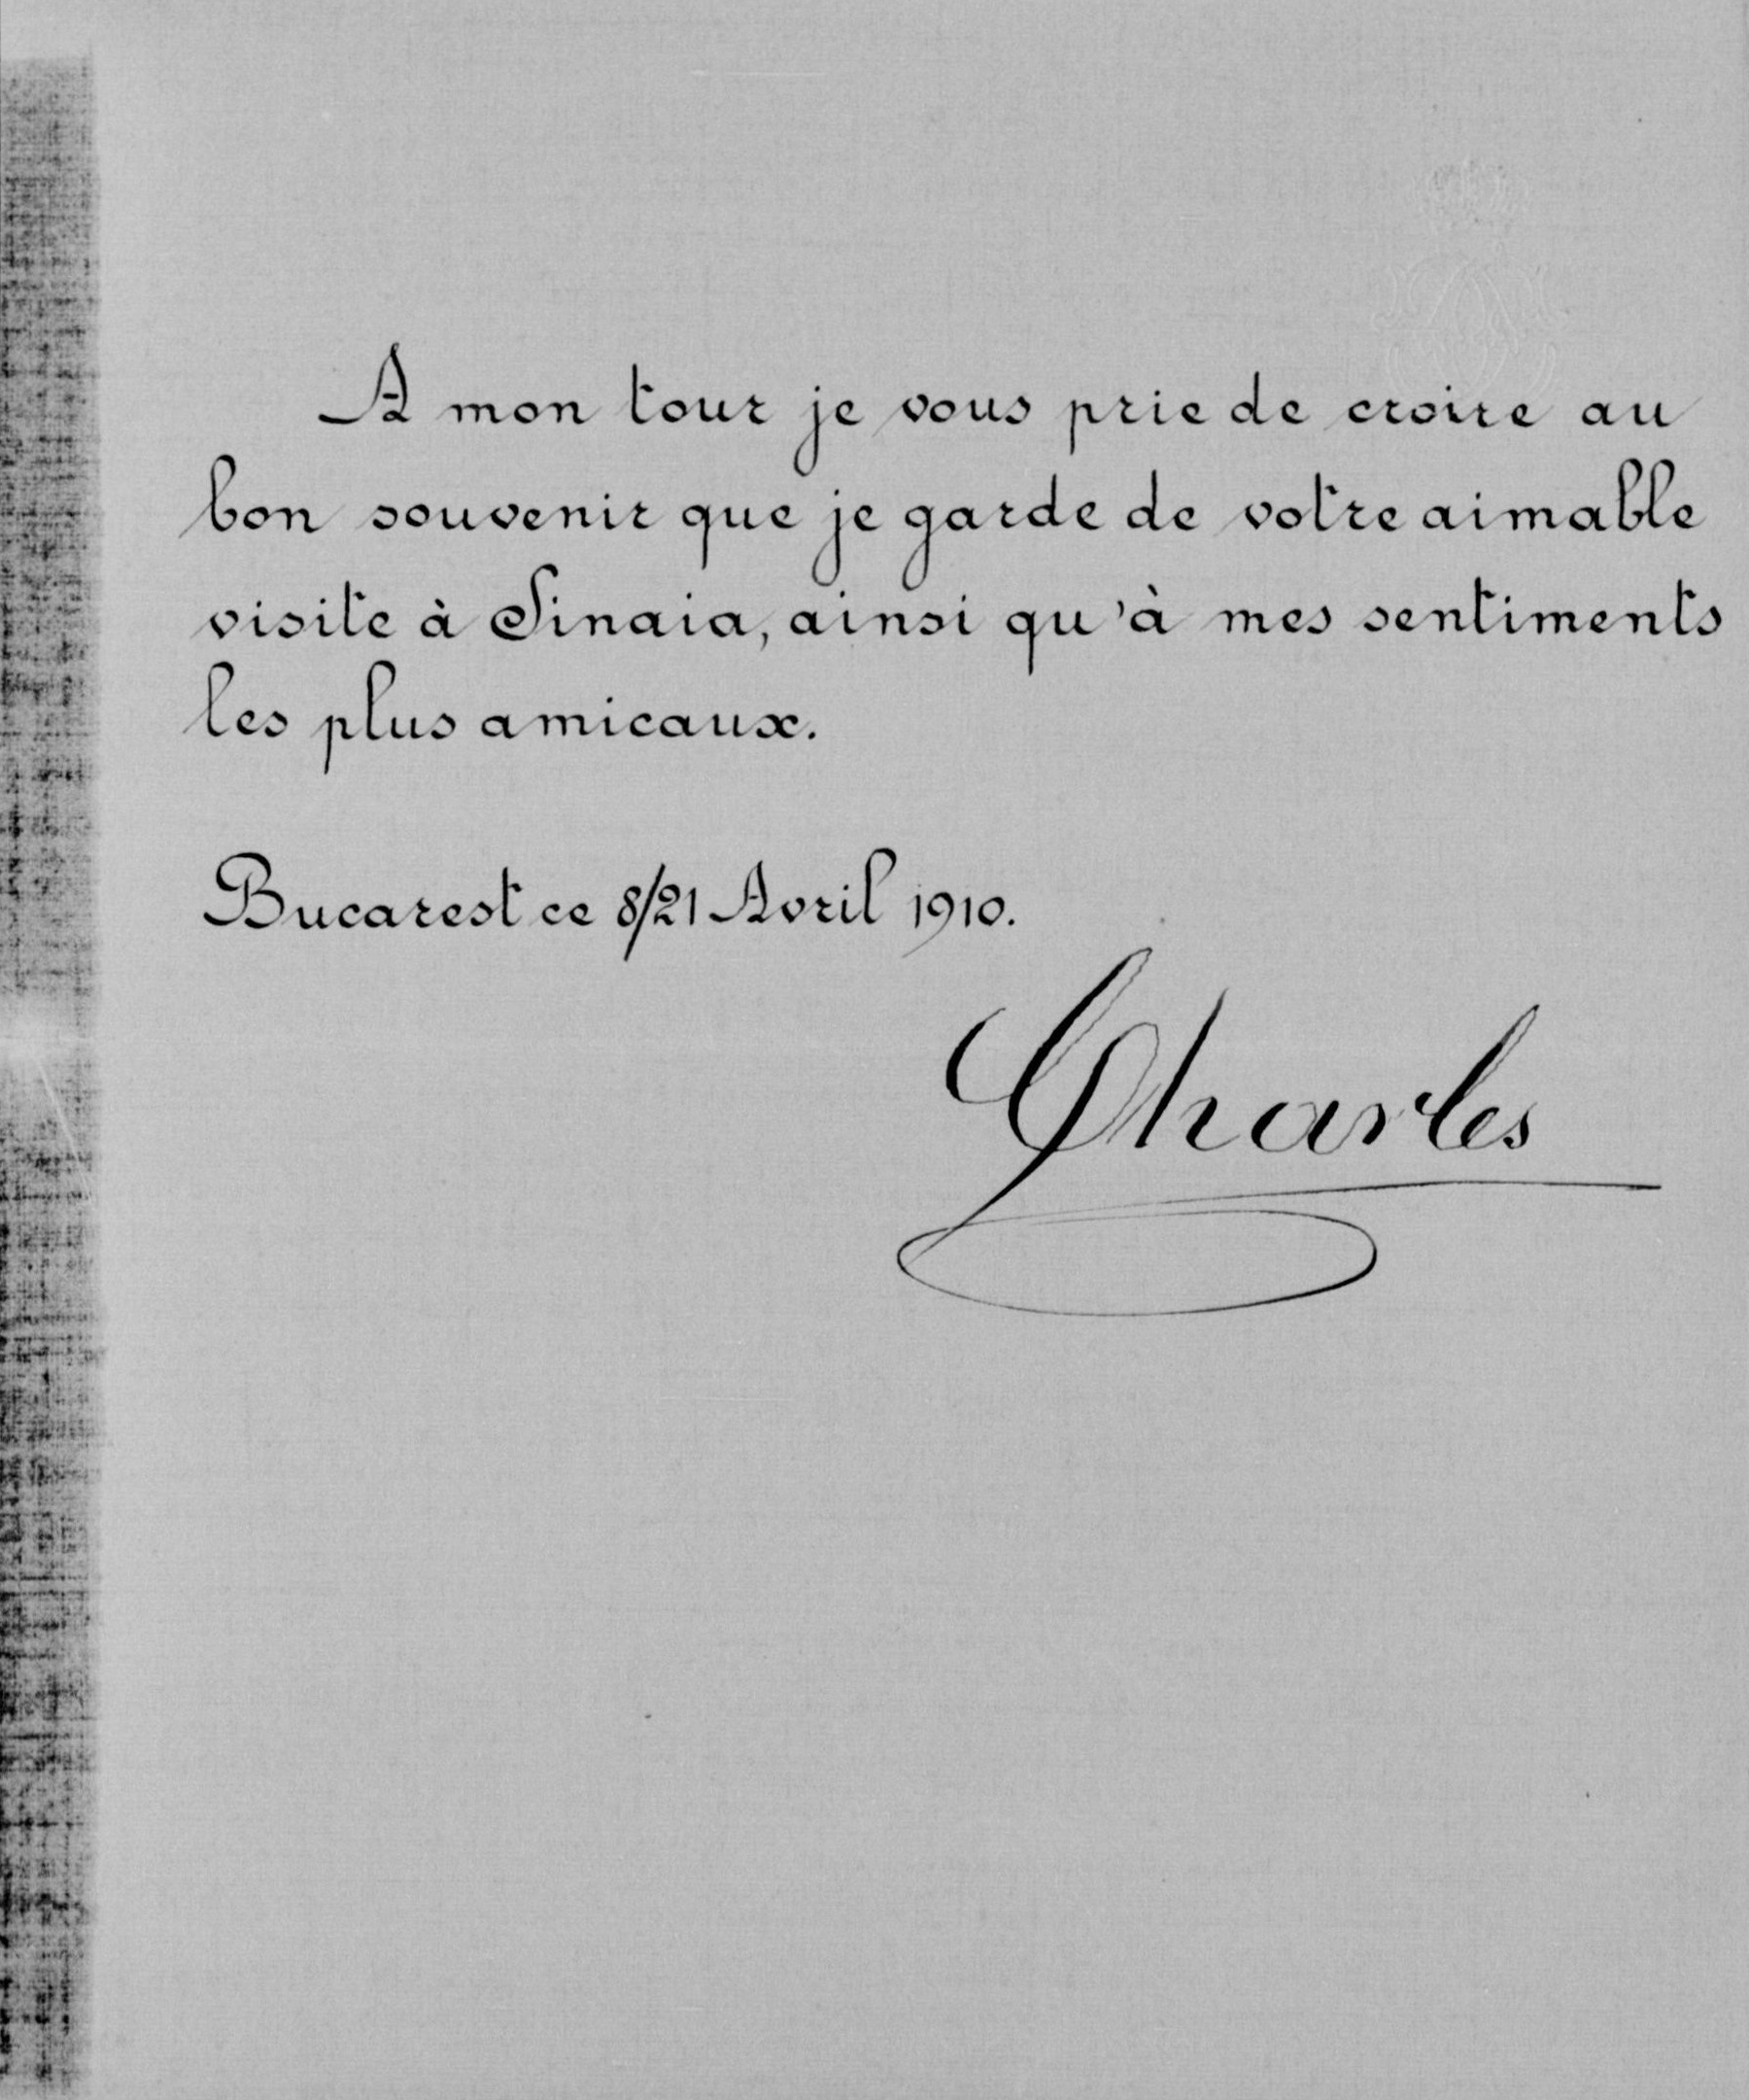 A mon tour je vous prie de croire au
bon souvenir que je garde de votre aimable
visite à Sinaia, ainsi qu'à mes sentiments
les plus amicaux.
Bucarest ce 8/21 Avril 1910.
Charles